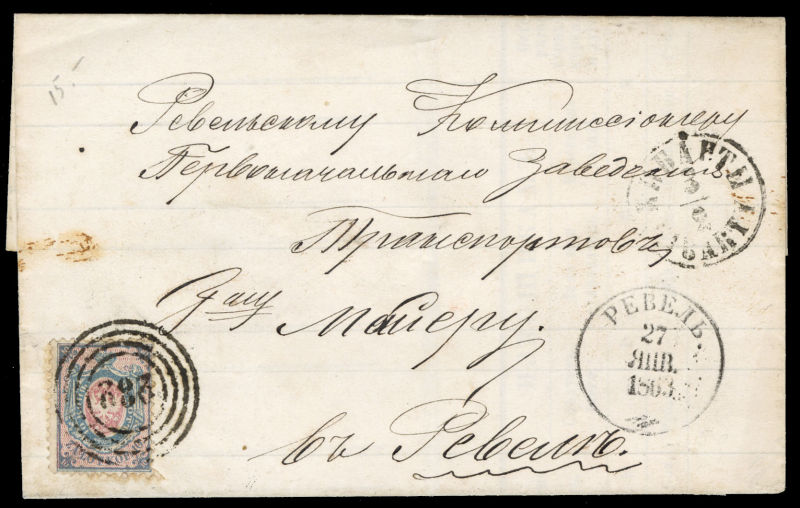 15.-
Ревельскому Коммиссіонеру
Первоначальнаго Заведенія
Транспортовъ,
Г-ну
Майеру.
въ Ревелѣ.
РЕВЕЛЬ.
27
ЯНВ.
1863